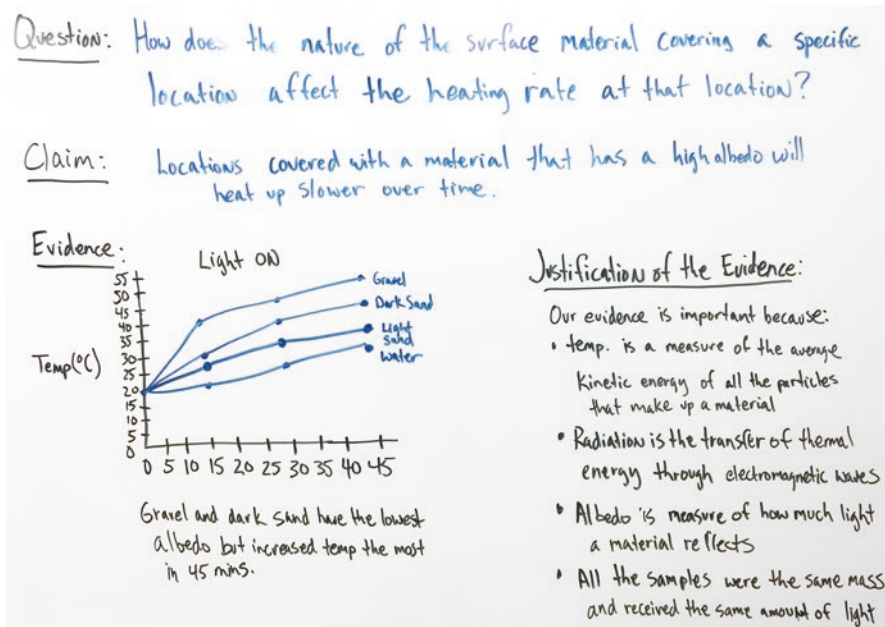 Question: How does the nature of the surface material covering a specific
location affect the heating rate at that location?
Claim: Locations covered with a material that has a high albedo will
heat up slower over time.
Evidence:
Light ON
55
50
45
40
35
30
25
20
15
10
5
0
Temp(°C)
Gravel
Dark Sand
Light
Sand
Water
0 5 10 15 20 25 30 35 40 45
Gravel and dark sand have the lowest
albedo but increased temp the most
in 45 mins.
Justification of the Evidence:
Our evidence is important because:
• temp. is a measure of the average
kinetic energy of all the particles
that make up a material
• Radiation is the transfer of thermal
energy through electromagnetic waves
• Albedo is measure of how much light
a material reflects
• All the samples were the same mass
and received the same amount of light